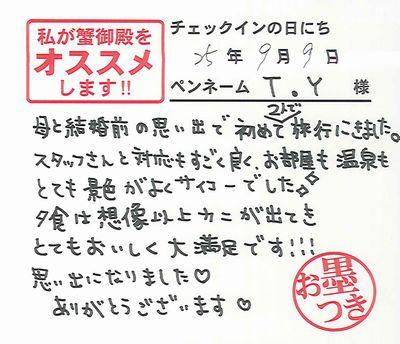 私が蟹御殿を
オススメ
します!!
チェックインの日にち
25年9月9日
ペンネーム T.Y 様
母と結婚前の思い出で初めて2人で旅行にきました。
スタッフさんと対応もすごく良く、お部屋も温泉も
とても景色がよくサイコーでした
夕食は想像以上カニが出てき
とてもおいしく大満足です!!!
思い出になりました♡
ありがとうございます♡
お墨つき